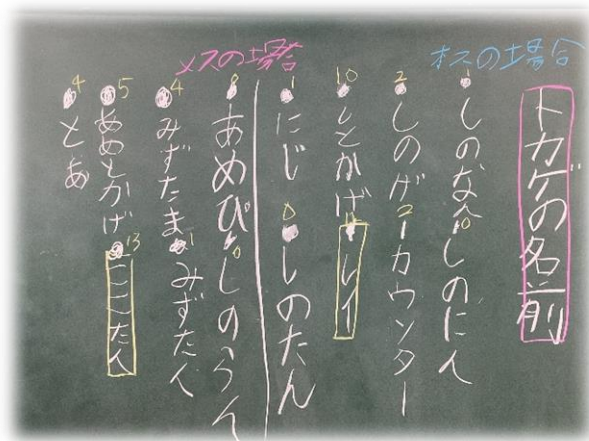 トカゲの名前
オスの場合
1 しのな 0 しのにん
2 しのげ 2 カウンター
10 しとかげ 14 レイ
1 にじ 0 しのたん
メスの場合
9 あめぴ 0 しのうん
4 みずたま 1 みずたん
5 あめとかげ 13 ここたん
4 とあ